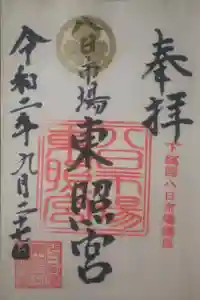 奉拝
八日市場
東照宮
令和二年九月二十七日
下総国八日市場鎮座
八日市場
東照宮